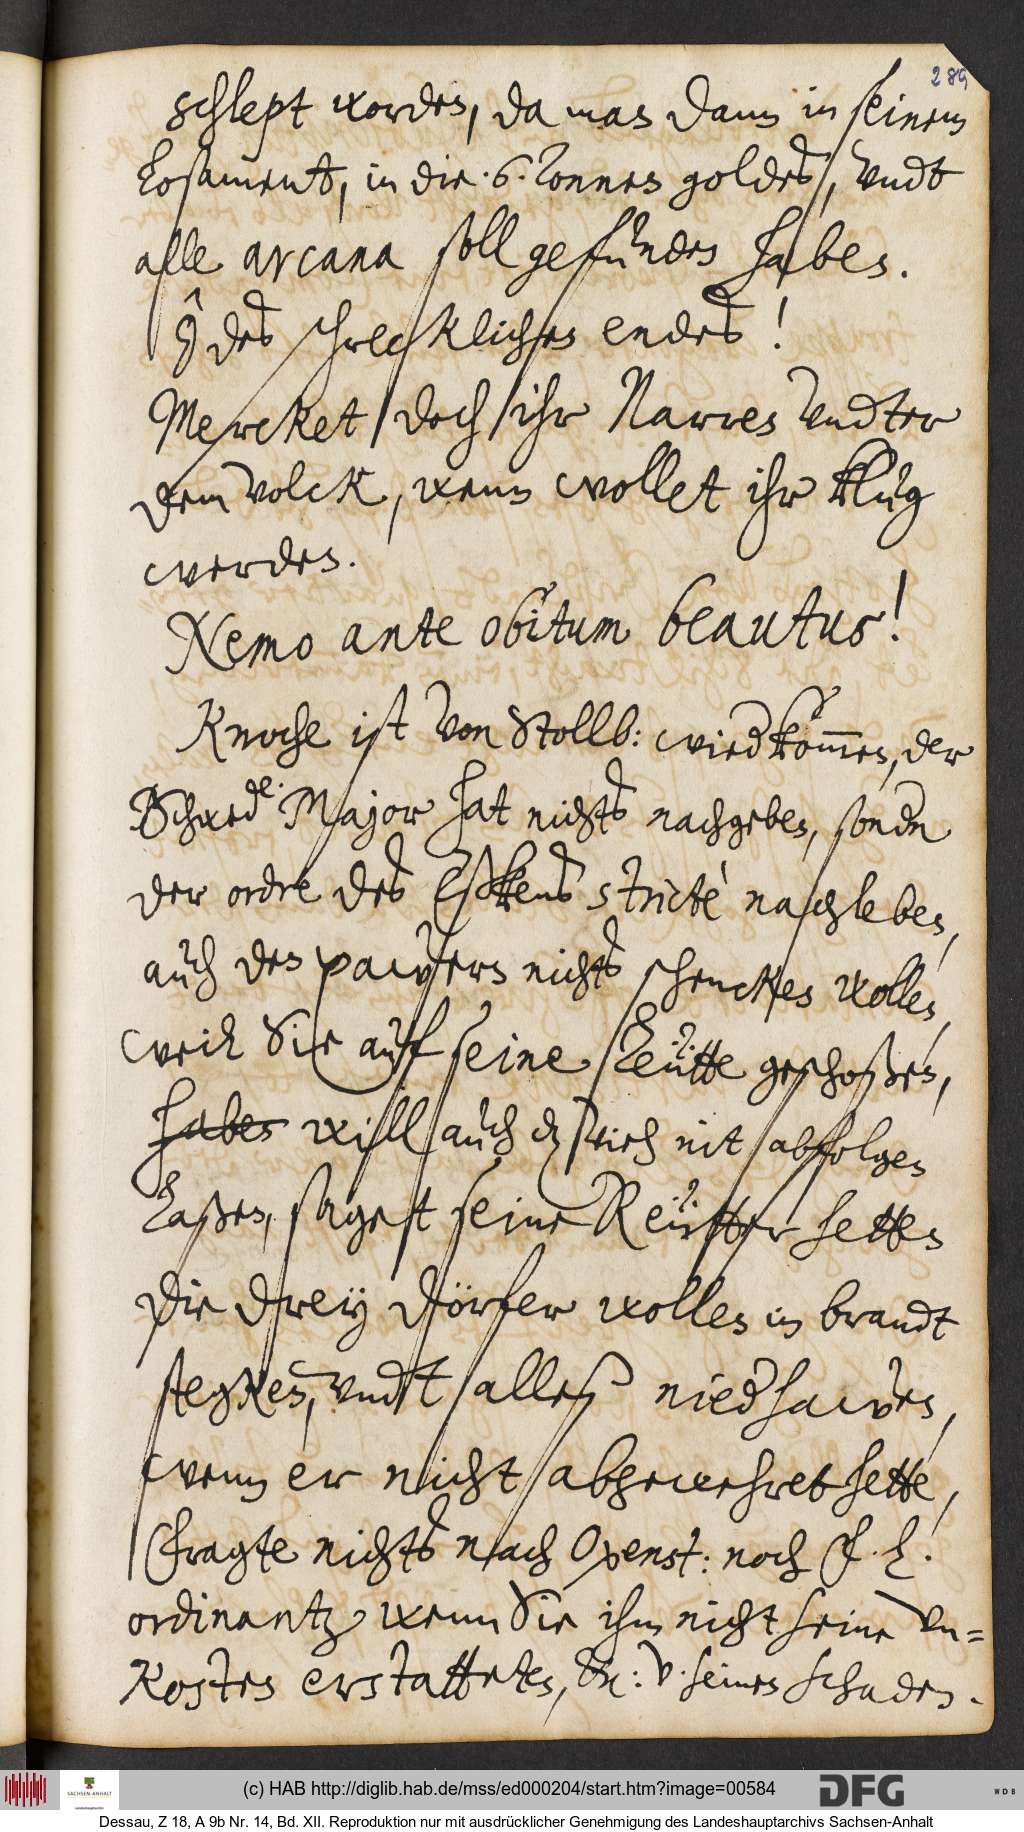 289
schlept worden, da man dann in seinem
Losament, in die .6. Tonnen goldes, undt
alle arcana soll gefunden haben.
ô des schrecklichen endes!
Mercket doch ihr Narren undter
dem volck, wenn wollet ihr klug
werden.
Nemo ante obitum beautus!
Knoche ist von Stollb: wied kommen, der
Schwede. Major hat nichts nachgeben, sondn
der ordre des Eßkens stricté nachleben,
auch den pawern nichts schencken wollen,
weil Sie auf seine Leütte geschoßen,
haben will auch dz vieh nit abfolgen
Laßen, saget seine Reütter hetten
die dreÿ dörfer wollen in brandt
stegken, undt alles nied hawen,
wenn er nicht abgewehret hette,
fragte nichts nach Oxenst: noch F. L.
ordinantz wenn Sie ihm nicht seine un=
kosten erstatteten, v. seinen schaden.
(c) HAB http://diglib.hab.de/mss/ed000204/start.htm?image=00584
SACHSEN-ANHALT
Landeshauptarchiv
DFG
WDB
Dessau, Z 18, A 9b Nr. 14, Bd. XII. Reproduktion nur mit ausdrücklicher Genehmigung des Landeshauptarchivs Sachsen-Anhalt